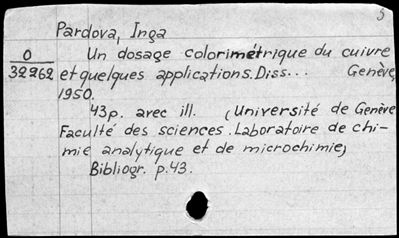 5
Pardova, Inga
O
32262
Un dosage colorimétrique du cuivre
et quelques applications. Diss... Genève,
1950.
43p. avec ill. (Université de Genève
Faculté des sciences. Laboratoire de chi-
mie analytique et de microchimie)
Bibliogr. p.43.